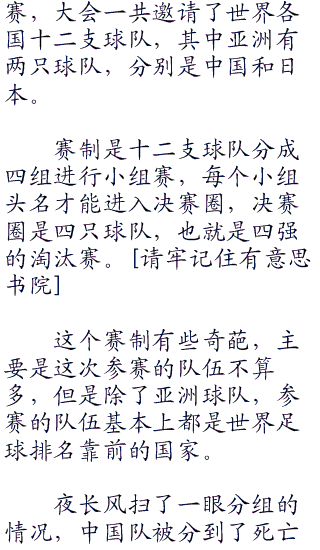 赛，大会一共邀请了世界各
国十二支球队，其中亚洲有
两只球队，分别是中国和日
本。
赛制是十二支球队分成
四组进行小组赛，每个小组
头名才能进入决赛圈，决赛
圈是四只球队，也就是四强
的淘汰赛。[请牢记住有意思
书院]
这个赛制有些奇葩，主
要是这次参赛的队伍不算
多，但是除了亚洲球队，参
赛的队伍基本上都是世界足
球排名靠前的国家。
夜长风扫了一眼分组的
情况，中国队被分到了死亡